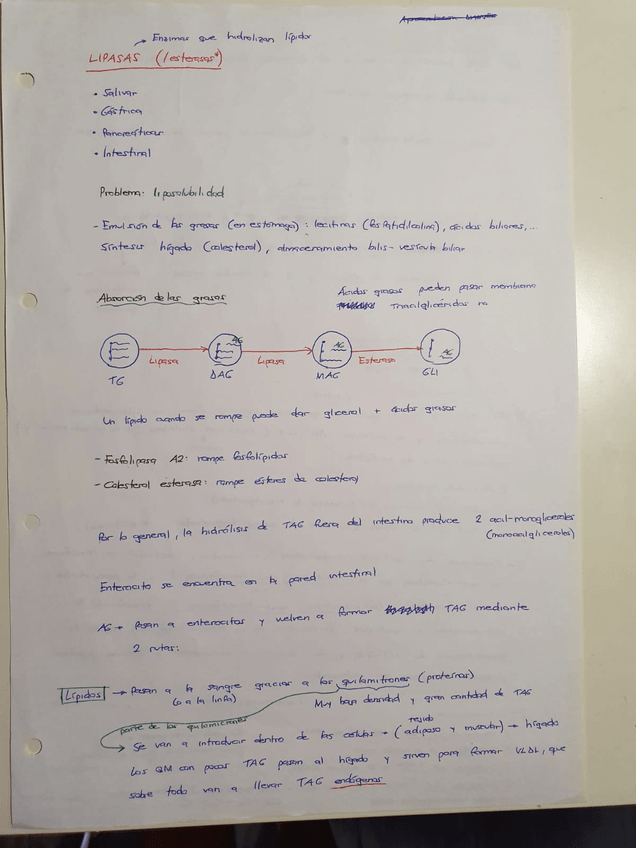 Enzimas que hidrolizan lípidos
LIPASAS (/esterasas*)
• Salivar
• Gástrica
• Pancreáticas
• Intestinal
Problema: liposolubilidad
- Emulsión de las grasas (en estómago): lecitinas (fosfatidilcolina), ácidos biliares,...
Síntesis hígado (colesterol), almacenamiento bilis - vesícula biliar
Absorción de las grasas
Ácidos grasos pueden pasar membrana
Triacilglicéridos no
AG AG AG
Lipasa Lipasa Esterasa
TG DAG MAG GLI
Un lípido cuando se rompe puede dar glicerol + ácidos grasos
- Fosfolipasa A2: rompe fosfolípidos
- Colesterol esterasa: rompe ésteres de colesterol
Por lo general, la hidrólisis de TAG fuera del intestino produce 2 acil-monogliceroles
(monoacilgliceroles)
Enterocito se encuentra en la pared intestinal
AG → Pasan a enterocitos y vuelven a formar TAG mediante
2 rutas:
Lípidos → Pasan a la sangre gracias a los quilomicrones (proteínas)
(o a la linfa) Muy baja densidad y gran cantidad de TAG
parte de los quilomicrones
tejido
Se van a introducir dentro de las células → (adiposo y muscular) → hígado
Los QM con pocos TAG pasan al hígado y sirven para formar VLDL, que
sobre todo van a llevar TAG endógenos